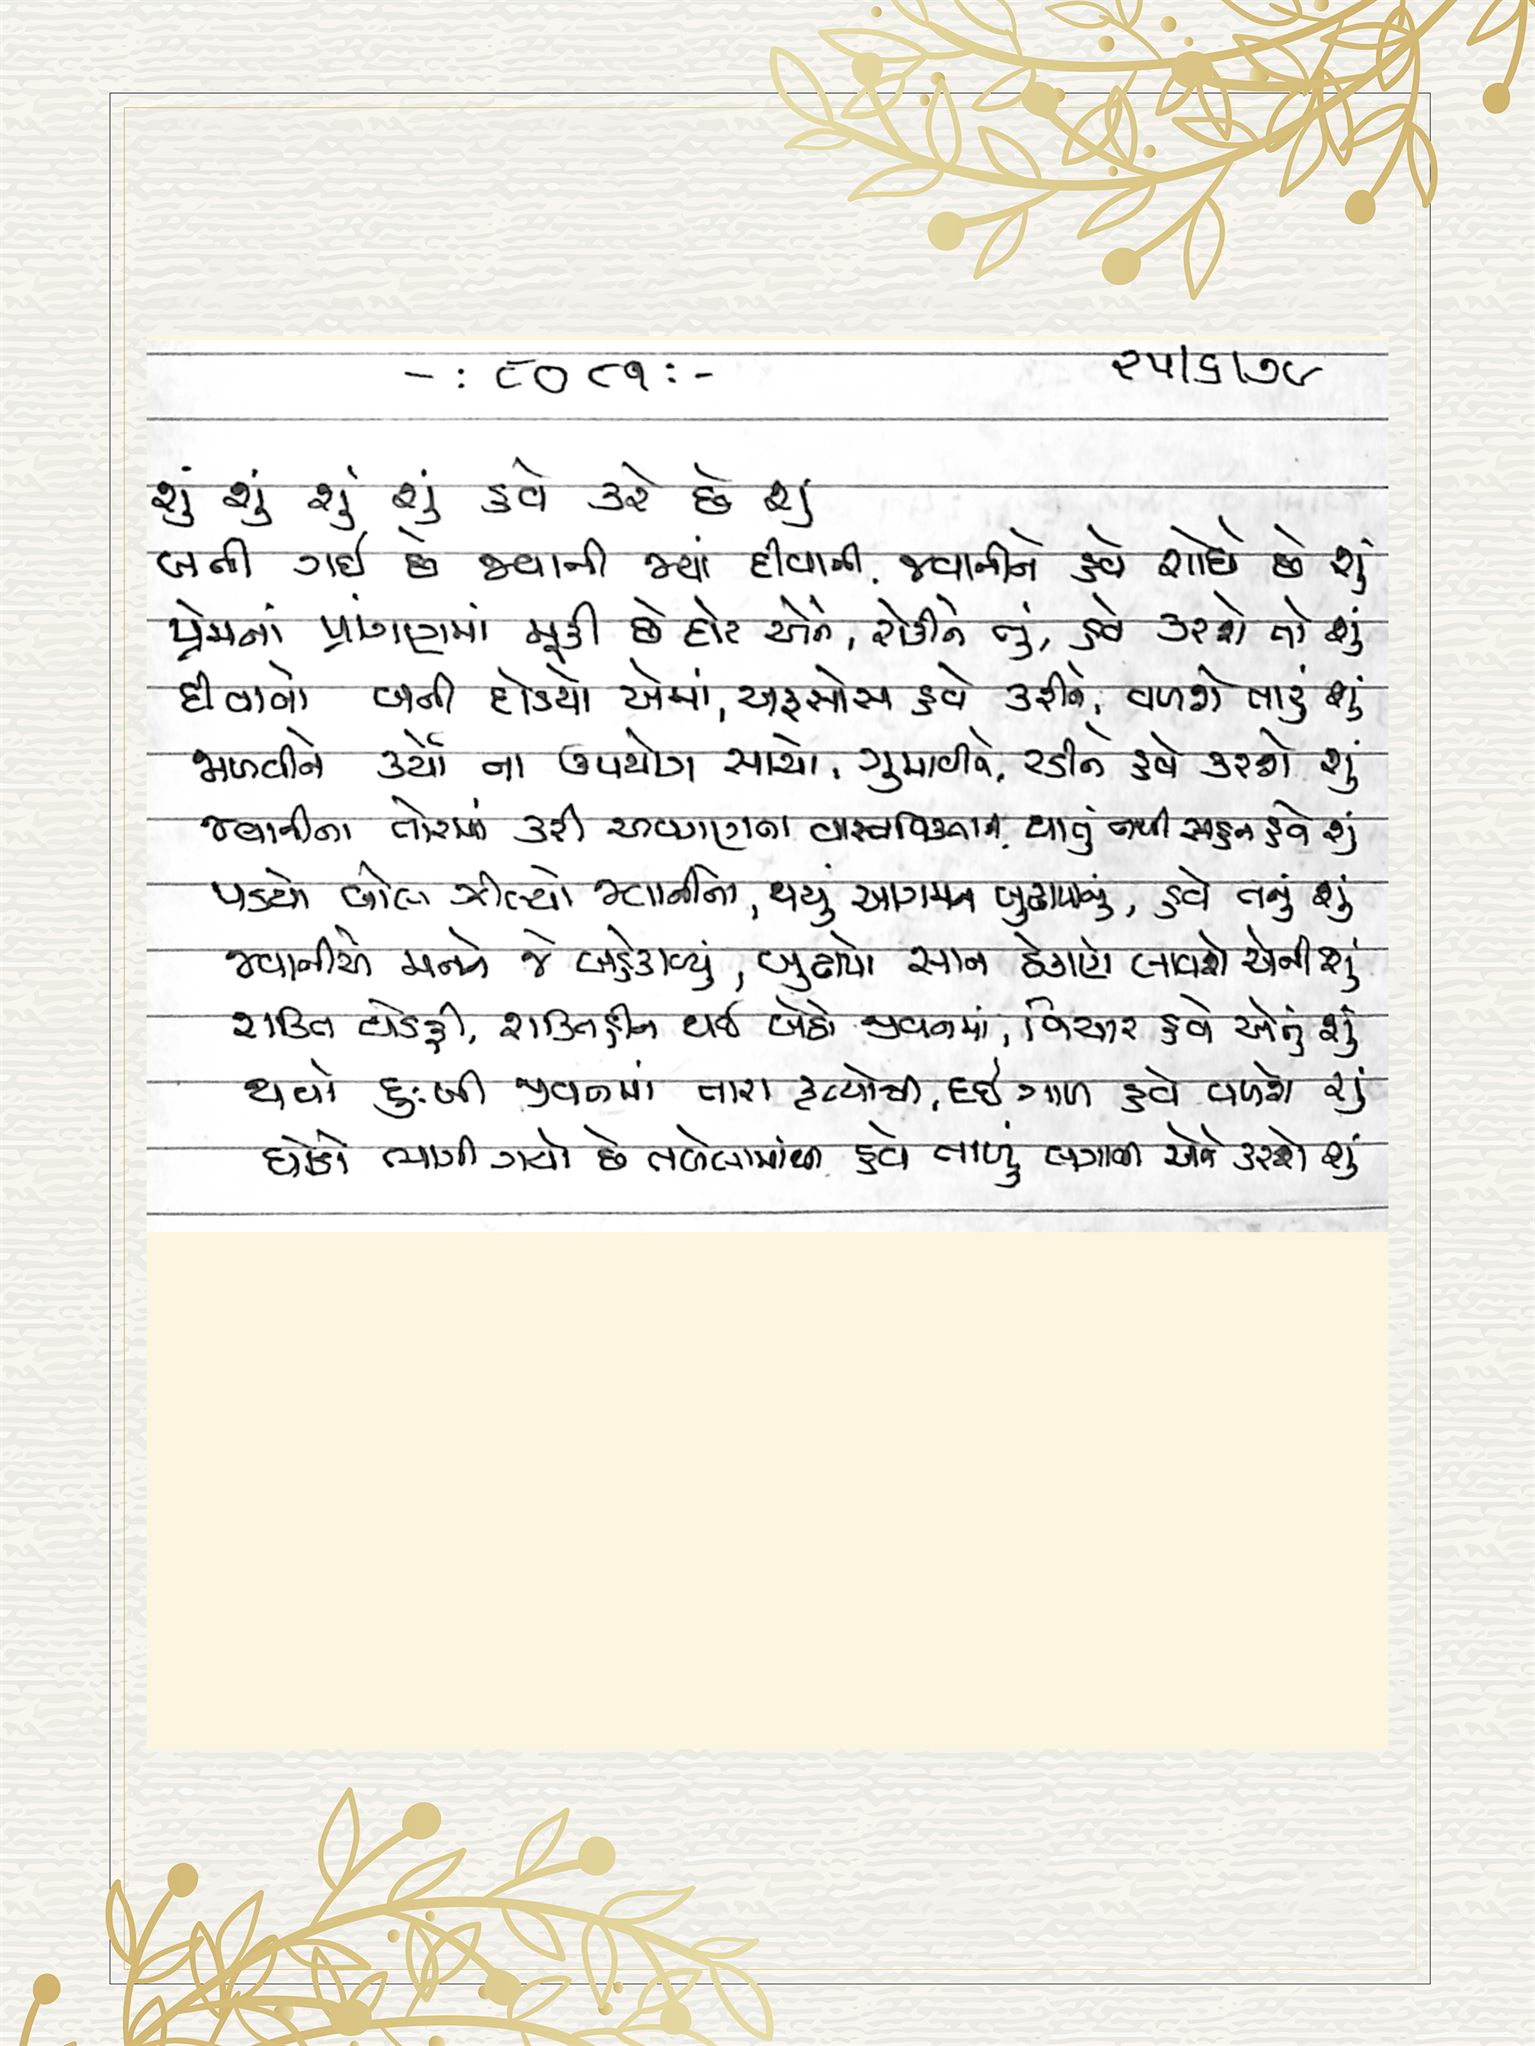 -: ૮૦૮૧ :-
૨૫/૬/૭૯
શું શું શું શું હવે કરે છે શું
બની ગઈ છે જવાની જ્યાં દીવાની, જવાનીને હવે શોધે છે શું
પ્રેમનાં પ્રાંગણમાં મૂકી છે દોટ એને, રોકીને તું, હવે કરશે તો શું
દીવાનો બની દોડયો એમાં, અફસોસ હવે કરીને, વળશે તારું શું
મળવીને કર્યો ના ઉપયોગ સાચો, ગુમાવીને, રડીને હવે કરશે શું
જવાનીના તોરમાં કરી અવગણના વાસ્તવિકતાને, થાતું નથી સહન હવે શું
પડયો બોલ ઝીલ્યો જવાનીનો, થયું આગમન બુઢાપાનું, હવે તનું શું
જવાનીએ મનને જે બહેકાવ્યું, બુઢાપો સાન ઠેકાણે લાવશે એની શું
શક્તિ વેડફી, શક્તિહીન થઈ બેઠો જીવનમાં, વિચાર હવે એનું શું
થયો દુઃખી જીવનમાં તારા કૃત્યોથી, દઈ ગાળ હવે વળશે શું
ઘોડો ભાગી ગયો છે તબેલામાંથી હવે તાળું લગાવી એને કરશે શું